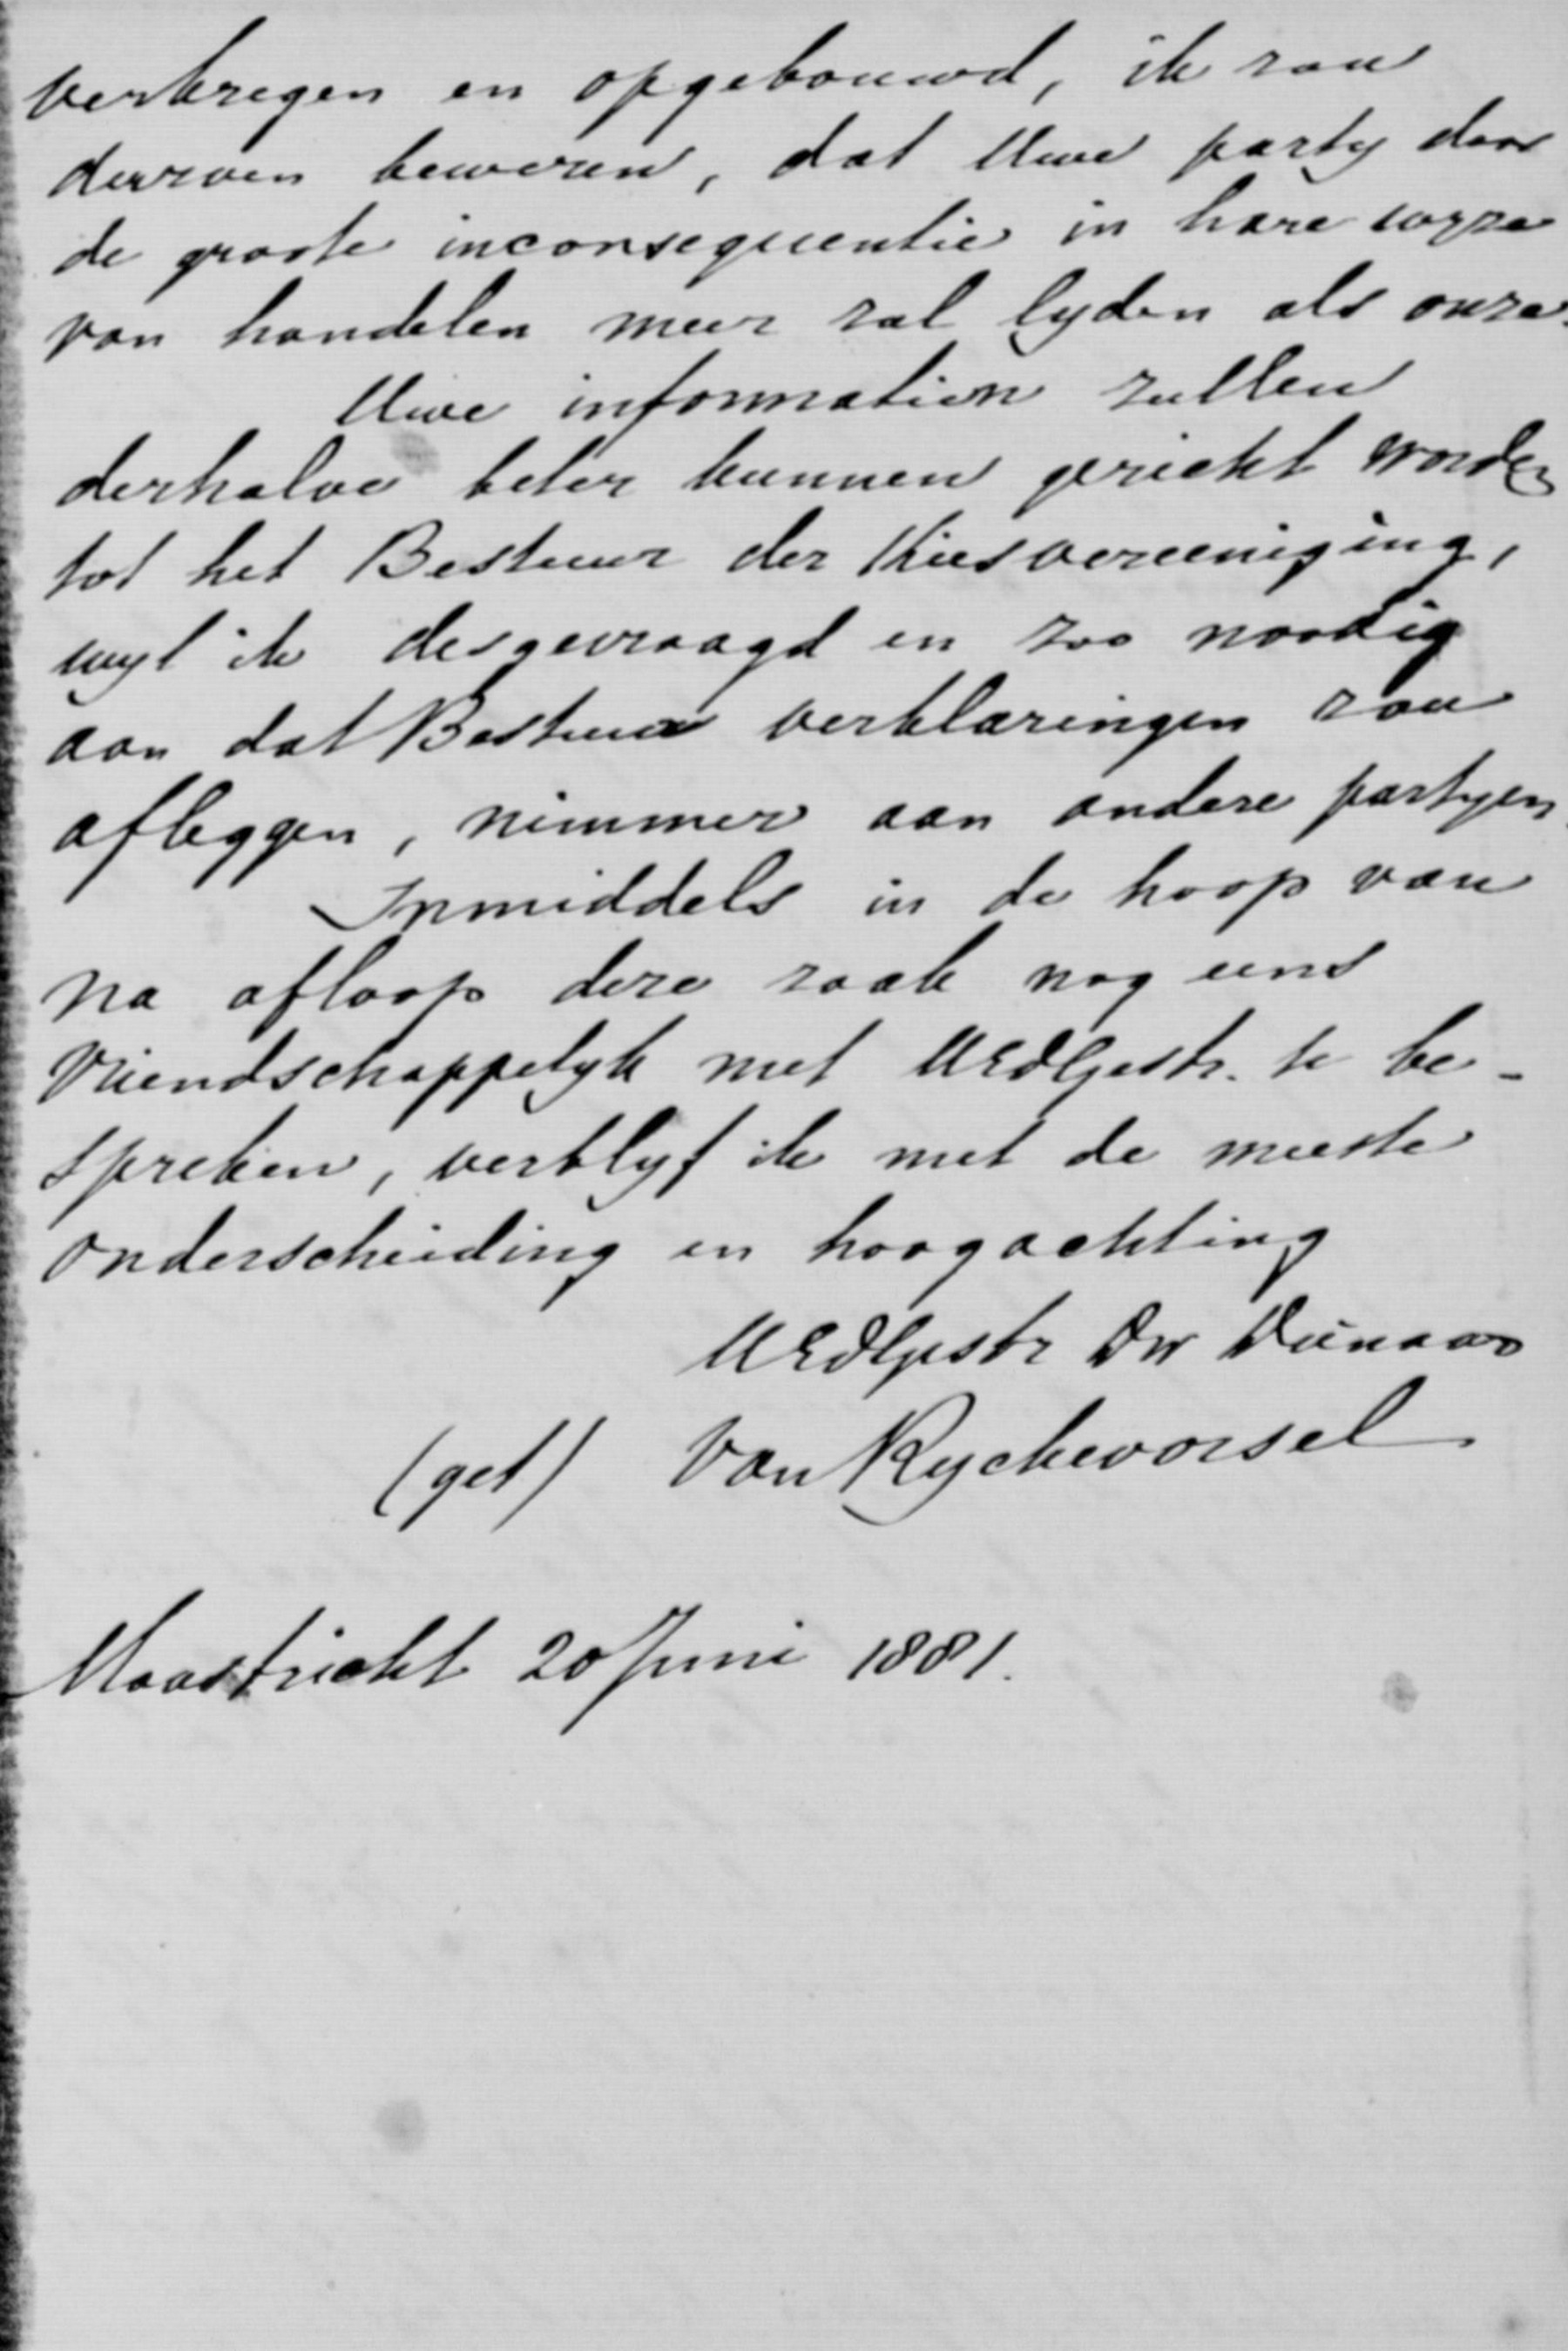 verkregen en opgebouwd, ik zou
durven beweren, dat Uwe party door
de groote inconsequentie in hare wyze
van handelen meer zal lyden als onze.
Uwe information zullen
derhalve beter kunnen gericht worden
tot het Bestuur der Kiesvereeniging,
wyl ik desgevraagd en zoo noodig
aan dat Bestuur verklaringen zou
afleggen, nimmer aan andere partyen.
Inmiddels in de hoop van
na afloop deze zaak nog eens
vriendschappelyk met UEdlgestr. te be-
spreken, verblyf ik met de meeste
onderscheiding en hoogachting
UEdlgestr Dw Dienaar
(get) Van Ryckevorsel
Maastricht 20 Juni 1881.